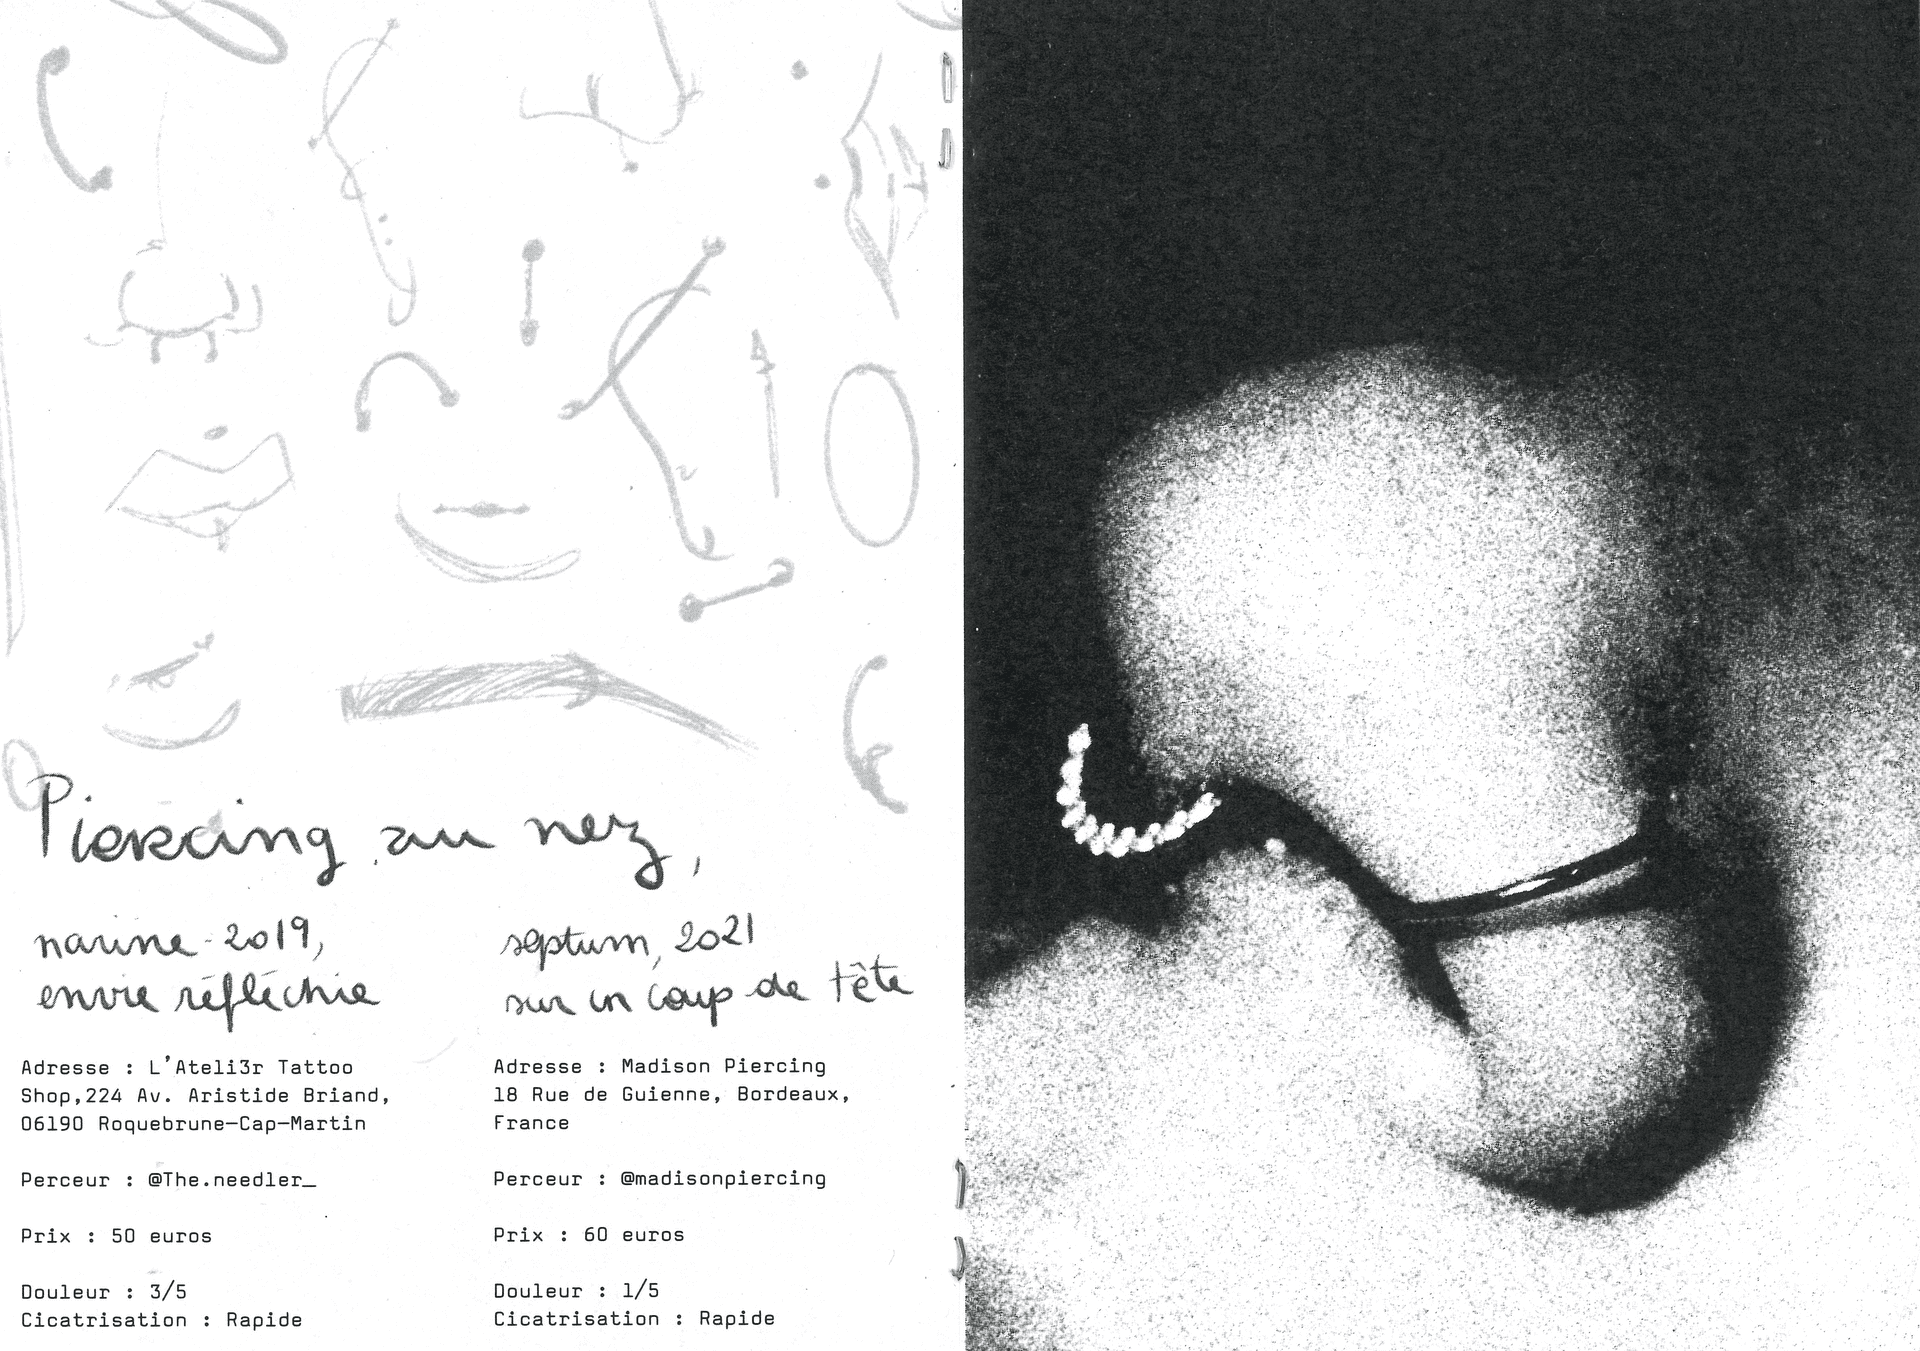 Piercing au nez,
narine 2019,
envie réfléchie
Adresse : L'Ateli3r Tattoo
Shop,224 Av. Aristide Briand,
06190 Roquebrune-Cap-Martin
Perceur : @The.needler_
Prix : 50 euros
Douleur : 3/5
Cicatrisation : Rapide
septum, 2021
sur un coup de tête
Adresse : Madison Piercing
18 Rue de Guienne, Bordeaux,
France
Perceur : @madisonpiercing
Prix : 60 euros
Douleur : 1/5
Cicatrisation : Rapide